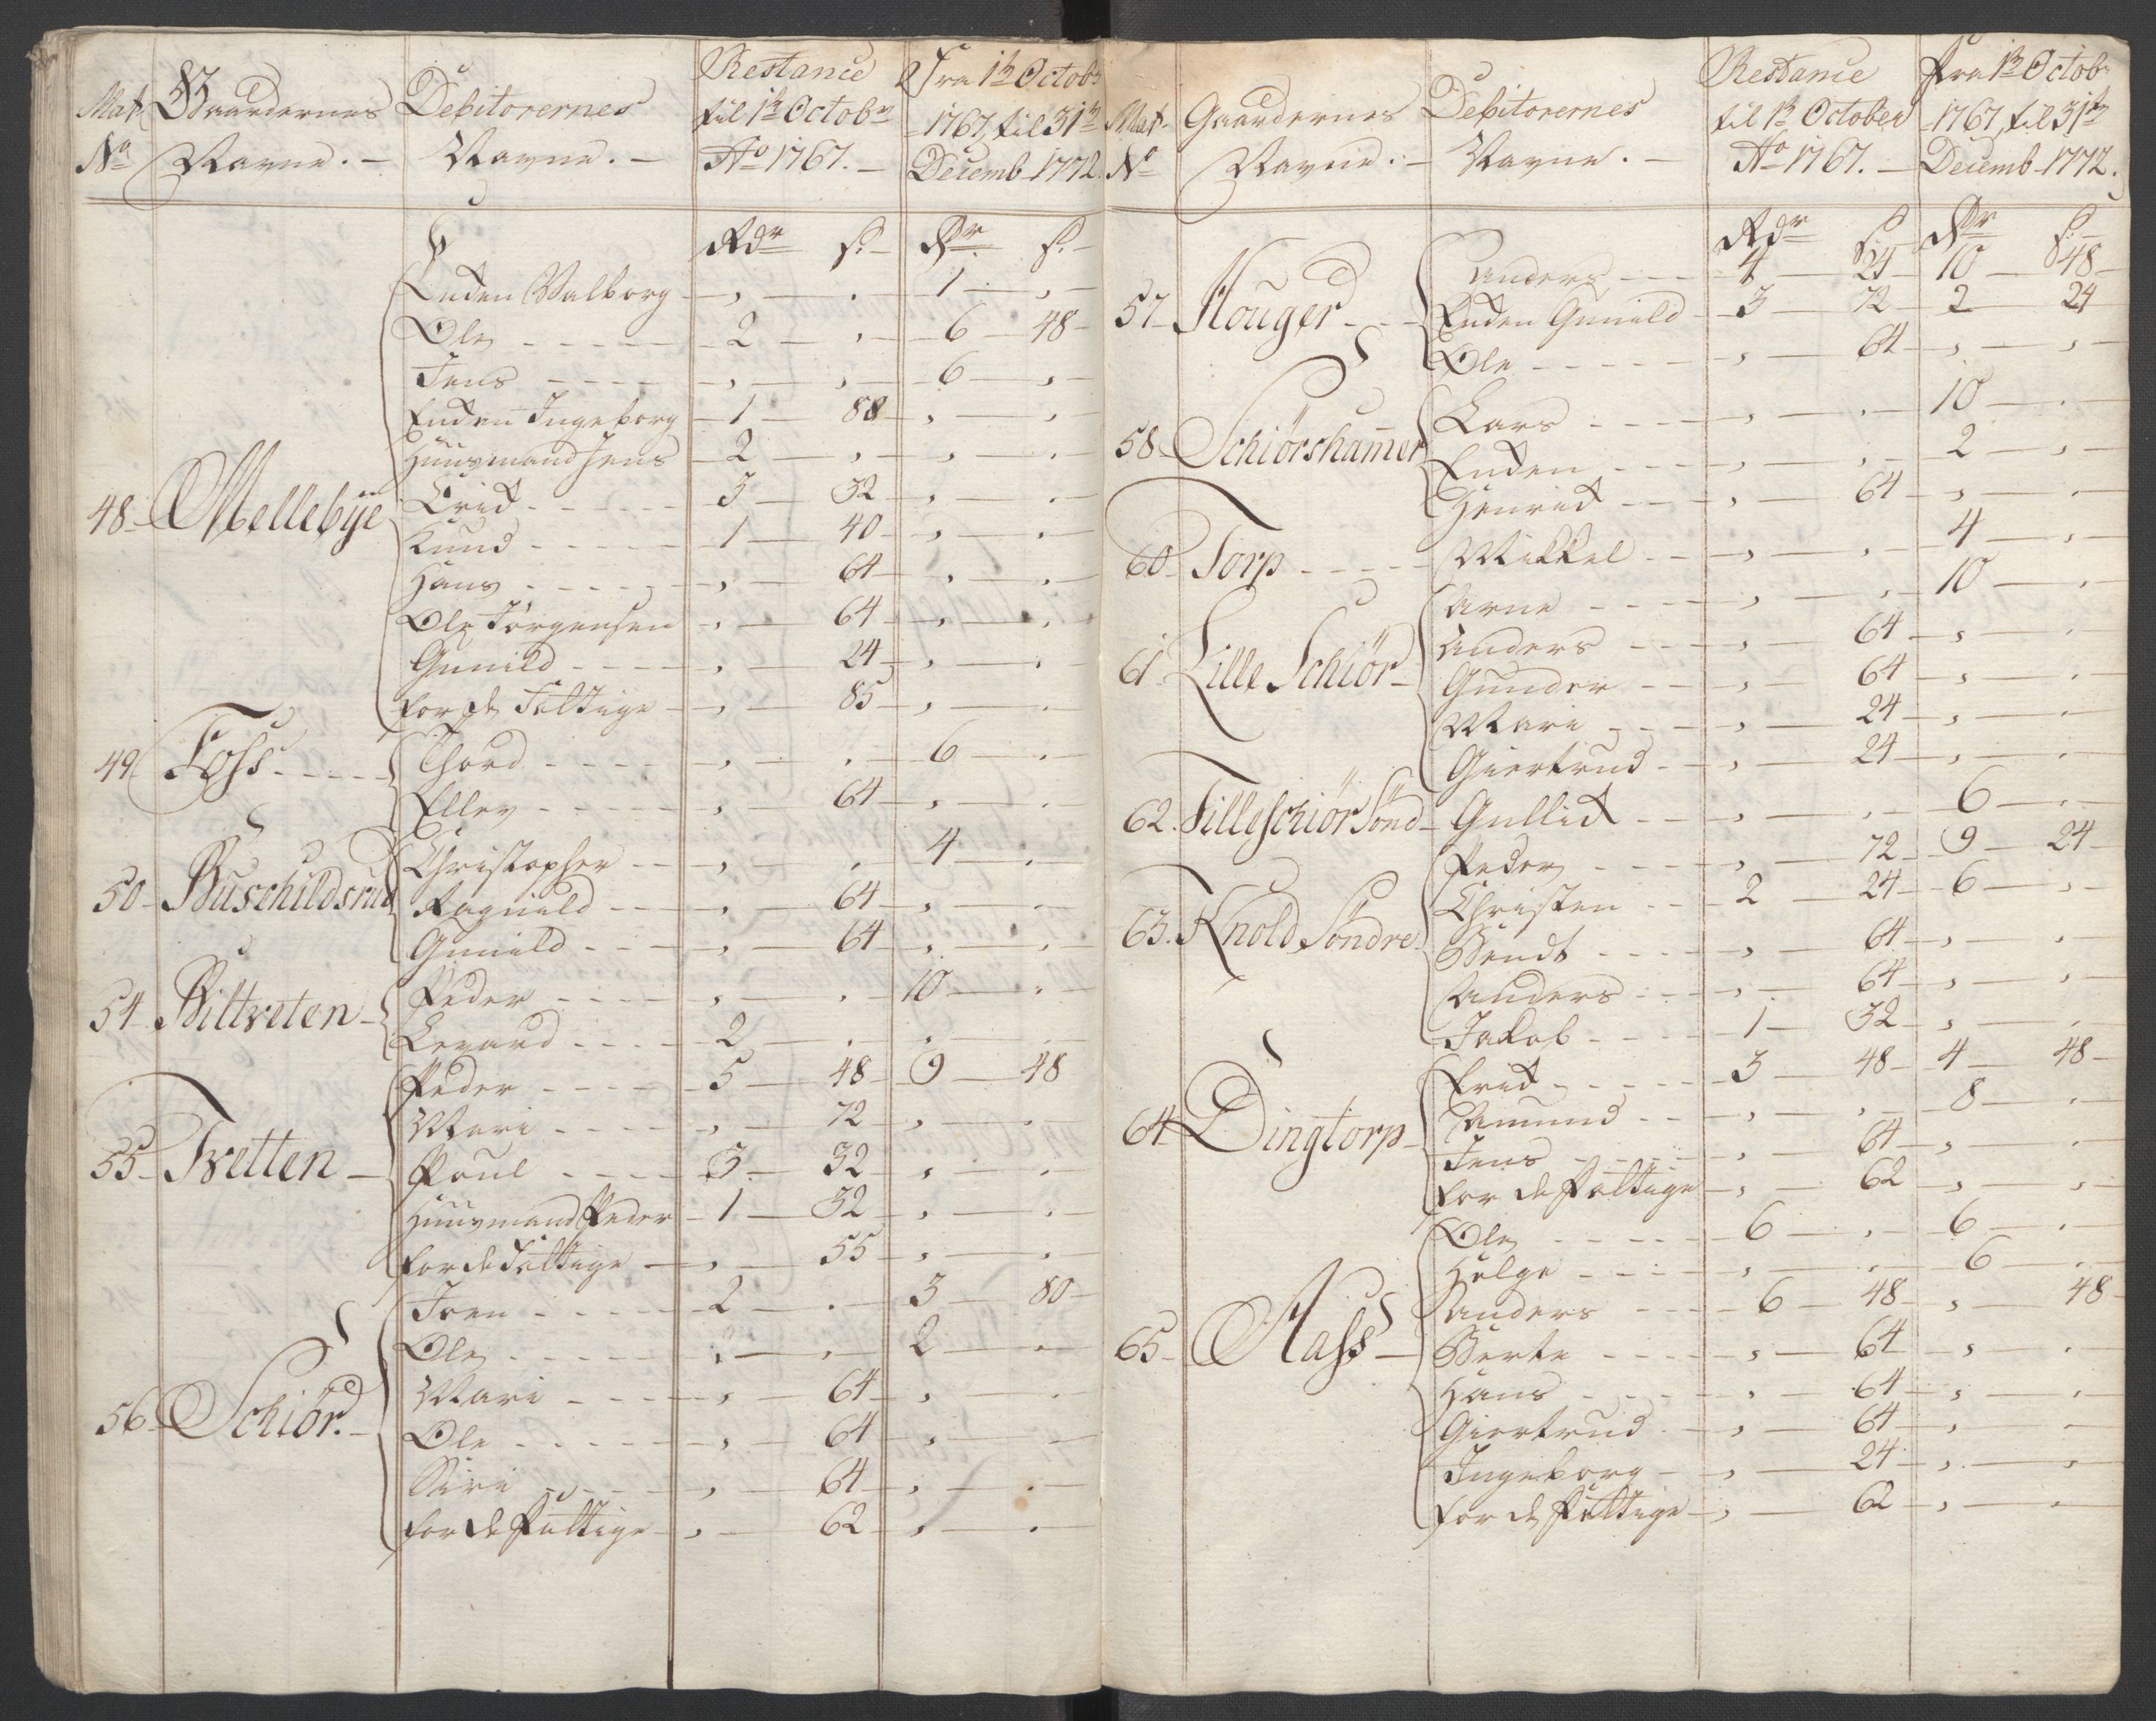 Mat. Gaardernes Debitorernes Restance Fra 1te Octobr
til 1te Octobr 1767, til 31te
No Navne. Navne. Ao 1767. Decemb 1772.
Rdr s. Rdr s.
Enken Walborg , . 1 ,
Ole 2 , 6 48
Jens , , 6 ,
Enken Ingeborg 1 88 , ,
Huusmand Jens 2 , , .
48 Mellebÿe Erik 3 32 , .
Knud 1 40 , .
Hans , 64 , .
Ole Jörgensen , 64 , .
Gunild , 24 , .
for de Fattige , 85 , .
49 Foss Thord , . 6 .
Ellev , 64 , .
50 Buschildsrud Christopher , . 4 .
Ragnild , 64 , .
Gunild , 64 , .
54 Biltveten Peder , . 10 .
Levard 2 . . .
Peder 5 48 9 48
Mari , 72 , .
55 Tvetten Poul 3 32 , .
Huusmand Peder 1 32 , .
for de Fattige , 55 , .
Joen 2 . 3 80
Ole , . 2 .
Mari , 64 , .
56 Schiör. Ole , 64 , .
Siri , 64 , .
for de Fattige , 62 , .
Mat. Gaardernes Debitorernes Restance fra 1te Octobr
til 1te October 1767, til 31te
No Navne. Navne. Ao 1767. Decemb 1772.
Rdr s. Rdr s.
Anders 4 24 10 48
57 Houger Enken Gunild 3 72 2 24
Ole , 64 , ,
Lars , . 10 .
58 Schiörshamer Enken , . 2 ,
Henrik , 64 , .
60 Torp Mikkel , . 4 ,
Arne , . 10 .
Anders , 64 , .
61 Lille Schiör Gunder , 64 , .
Mari , 24 , .
Giertrud , 24 , .
62. Lilleschiör Sönd Gullik , . 6 .
Peder , 72 9 24
Christen 2 24 6 ,
63. Knold Söndre Bendt , 64 , ,
Anders , 64 , ,
Jakob 1 32 , .
Erik 3 48 4 48
Amund , . 8 .
64 Dingtorp Jens , 64 , .
for de Fattige , 62 , ,
Ole 6 . 6 .
Helge , . 6 .
Anders 6 48 , 48
65 Aass Berte , 64 , .
Hans , 64 , .
Giertrud , 64 , .
Ingeborg , 24 , ,
for de Fattige , 62 , .